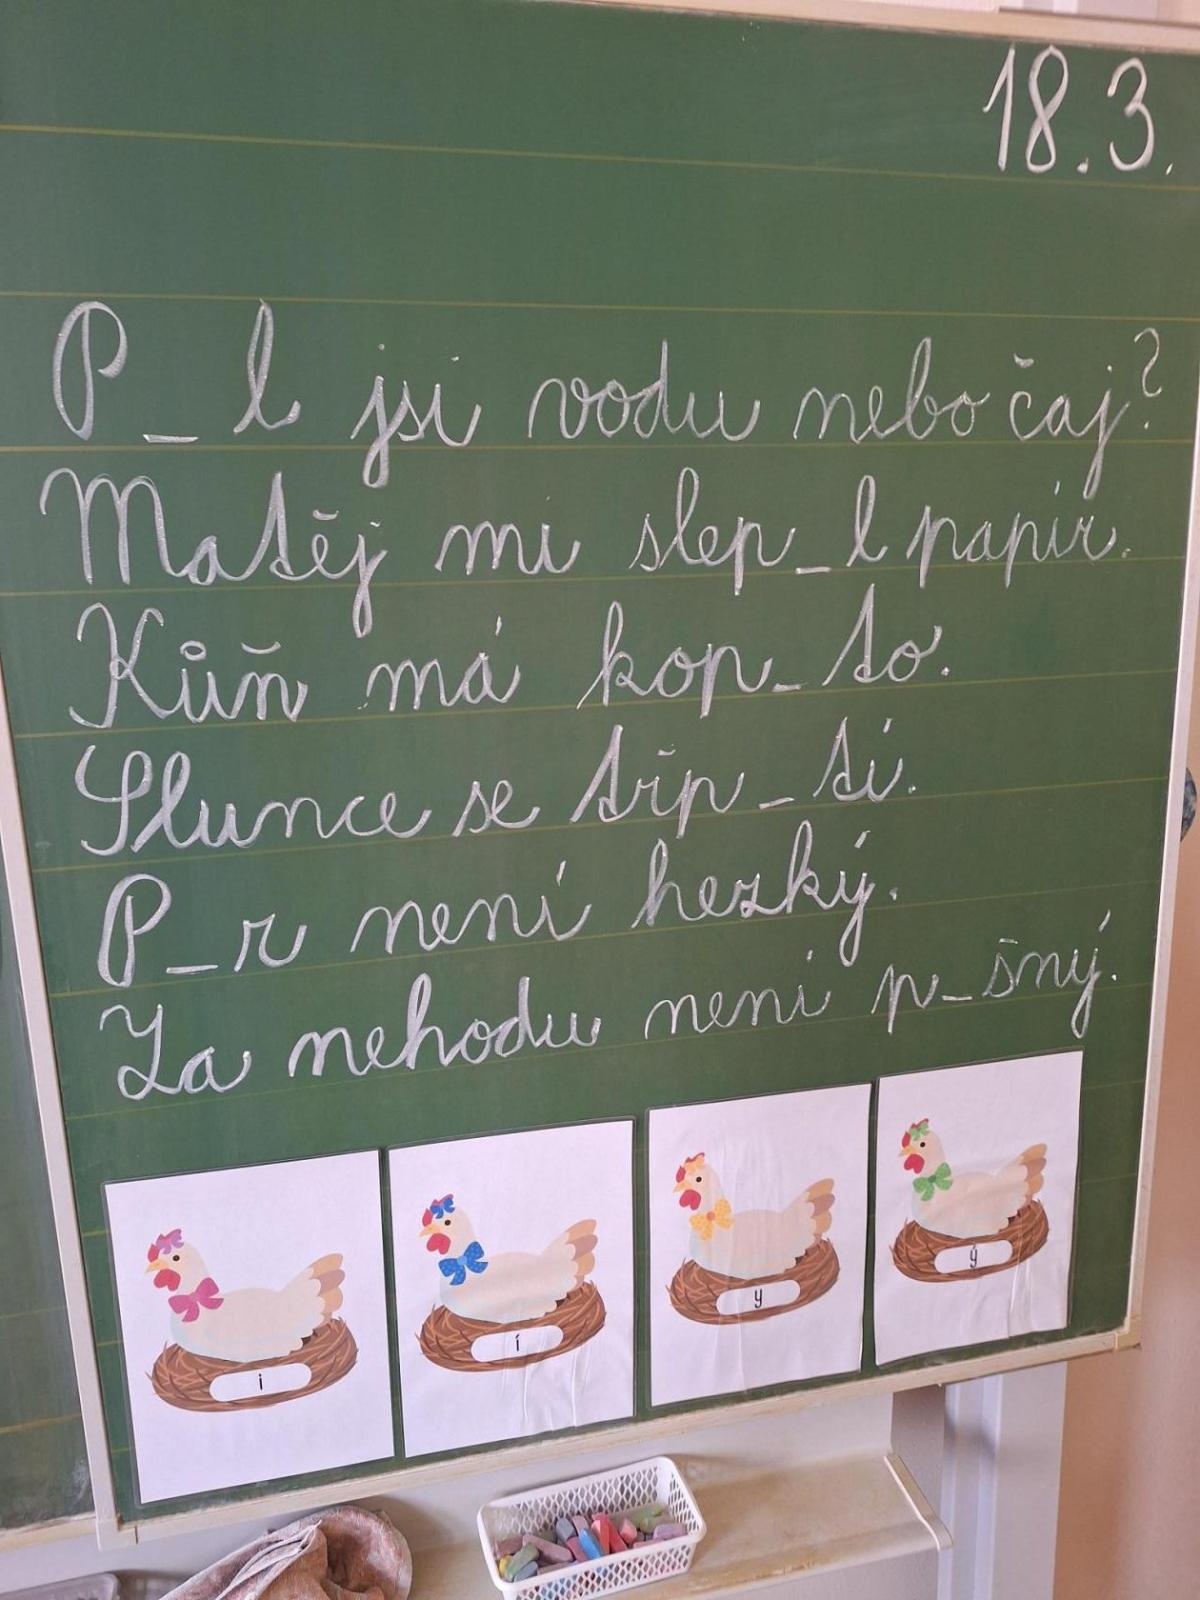 18.3.
P_l jsi vodu nebo čaj?
Matěj mi slep_l papír.
Kůň má kop_to.
Slunce se třp_tí.
P_r není hezký.
Za nehodu neni p_šný.
i
í
y
ý